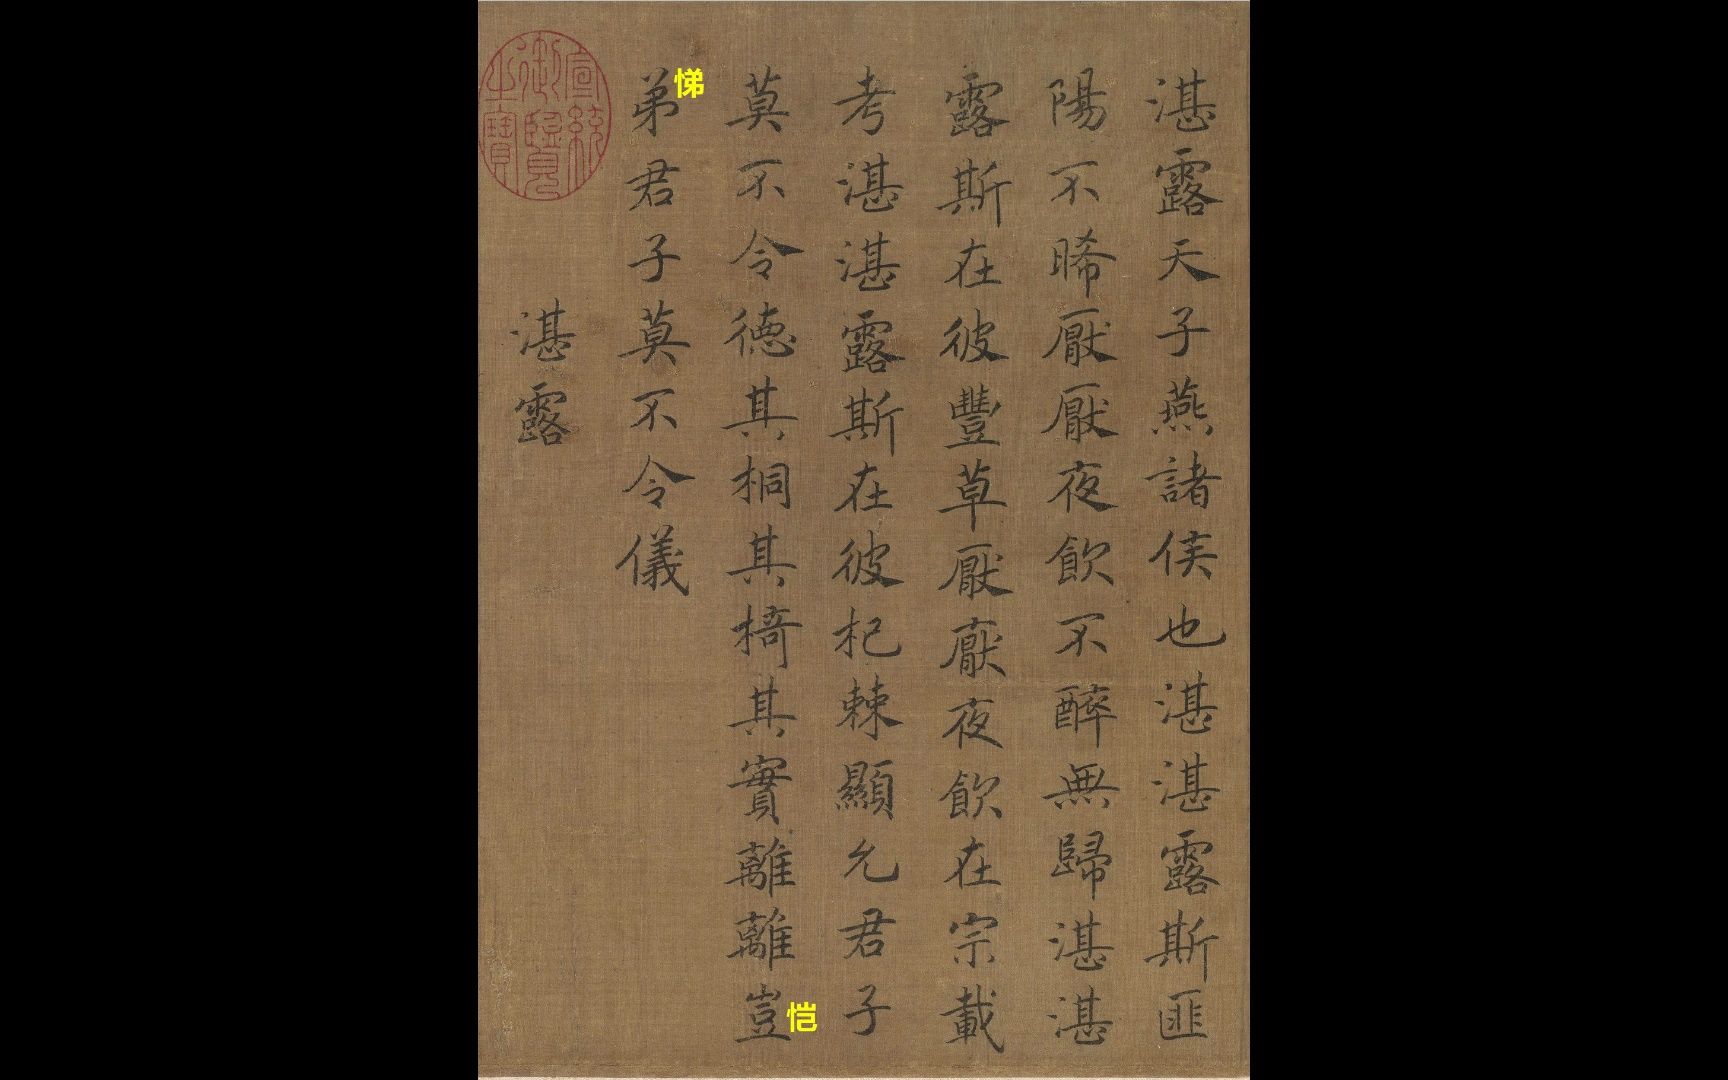 湛露天子燕諸侯也湛湛露斯匪
陽不晞厭厭夜飲不醉無歸湛湛
露斯在彼豐草厭厭夜飲在宗載
考湛湛露斯在彼杞棘顯允君子
莫不令德其桐其椅其實離離豈
恺
弟君子莫不令儀
悌
湛露
宣統御覽之寶